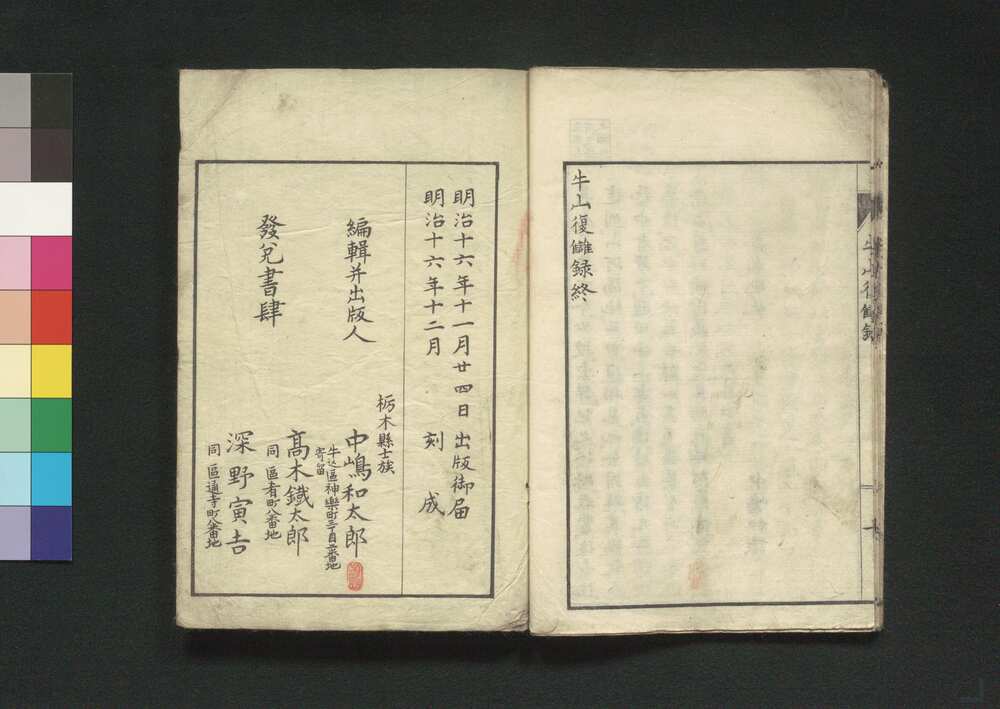 牛山復讎録
十
牛山復讎録終
明治十六年十一月廿四日出版御届
明治十六年十二月　刻成
編輯并出版人
栃木縣士族
中嶋和太郎
牛込區神樂町三丁目二番地
寄留
發兌書肆
髙木鐵太郎
同區肴町八番地
深野寅吉
同區通寺町八番地